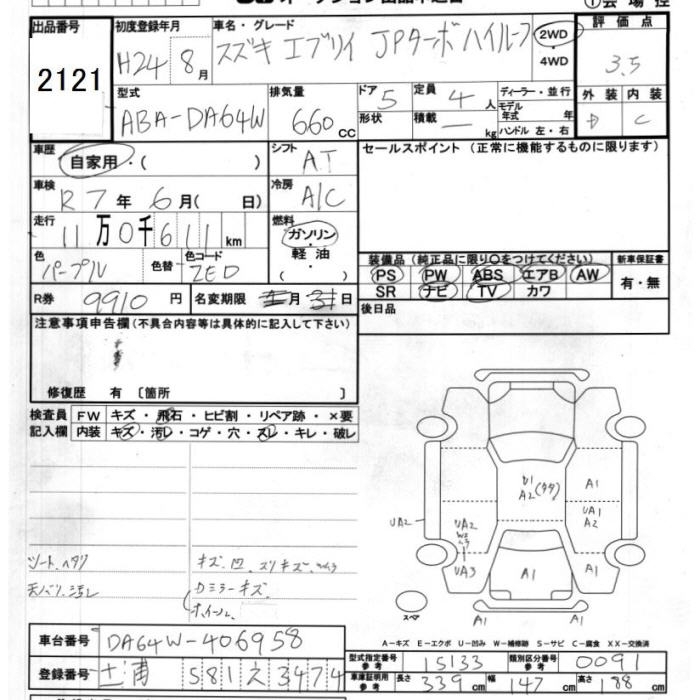 出品番号
2121
初度登録年月
H24年8月
車名・グレード
スズキ エブリイ JPターボ ハイルーフ
2WD
・
4WD
評価点
3.5
外装 内装
D C
型式
ABA-DA64W
排気量
660 CC
ドア 5
形状
定員 4 人
積載 — kg
ディーラー・並行
モデル年式 年
ハンドル 左・右
車歴
自家用・( )
シフト
AT
セールスポイント(正常に機能するものに限ります)
車検
R7年6月( 日)
冷房
A/C
走行
11万0千611km
燃料
ガソリン
・
軽油
( )
色
パープル
色替
色コード
ZED
装備品(純正品に限り○をつけてください)
新車保証書
PS PW ABS エアB AW
有・無
SR ナビ TV カワ
R券 9910円
名変期限 月31日
後日品
注意事項申告欄(不具合内容等は具体的に記入して下さい)
修復歴 有〔箇所 〕
検査員記入欄
FW キズ・飛石・ヒビ割・リペア跡・×要
内装 キズ・汚レ・コゲ・穴・スレ・キレ・破レ
シート.ヘタリ
天バリ.汚レ
キズ.凹.スリキズ.
ドミラーキズ
ホイール.
U1
A2(タタ)
A1
UA1
A2
UA2
UA2
W2
UA3
A1
A1
A1
A1
スペア
A-キズ E-エクボ U-凹み W-補修跡 S-サビ C-腐食 XX-交換済
車台番号 DA64W-406958
登録番号 土浦 581 え 3474
型式指定番号 参考 15133
類別区分番号 参考 0091
車庫証明用 参考 長さ 339cm 幅 147cm 高さ 188cm